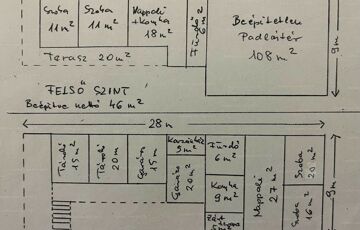 Szoba
11 m²
Szoba
11 m²
Nappali
+ konyha
18 m²
Fürdő
6 m²
Beépítetlen
Padlástér
108 m²
9 m
Terasz 20 m²
FELSŐ SZINT
Beépítve nettó 46 m²
28 m
Tároló
15 m²
Tároló
20 m²
Garázs
15 m²
Kazánház
9 m²
Garázs
20 m²
Fürdő
6 m²
Konyha
9 m²
Nappali
27 m²
Szoba
20 m²
Szoba
16 m²
9 m